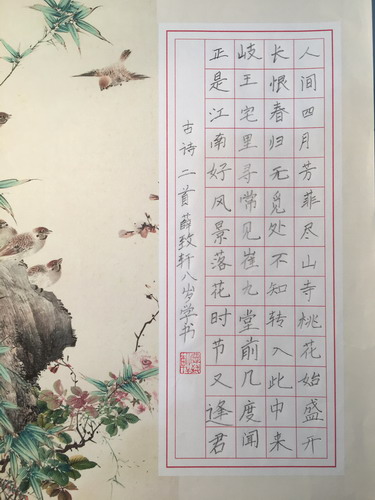 人间四月芳菲尽山寺桃花始盛开
长恨春归无觅处不知转入此中来
岐王宅里寻常见崔九堂前几度闻
正是江南好风景落花时节又逢君
古诗二首薛致轩八岁学书